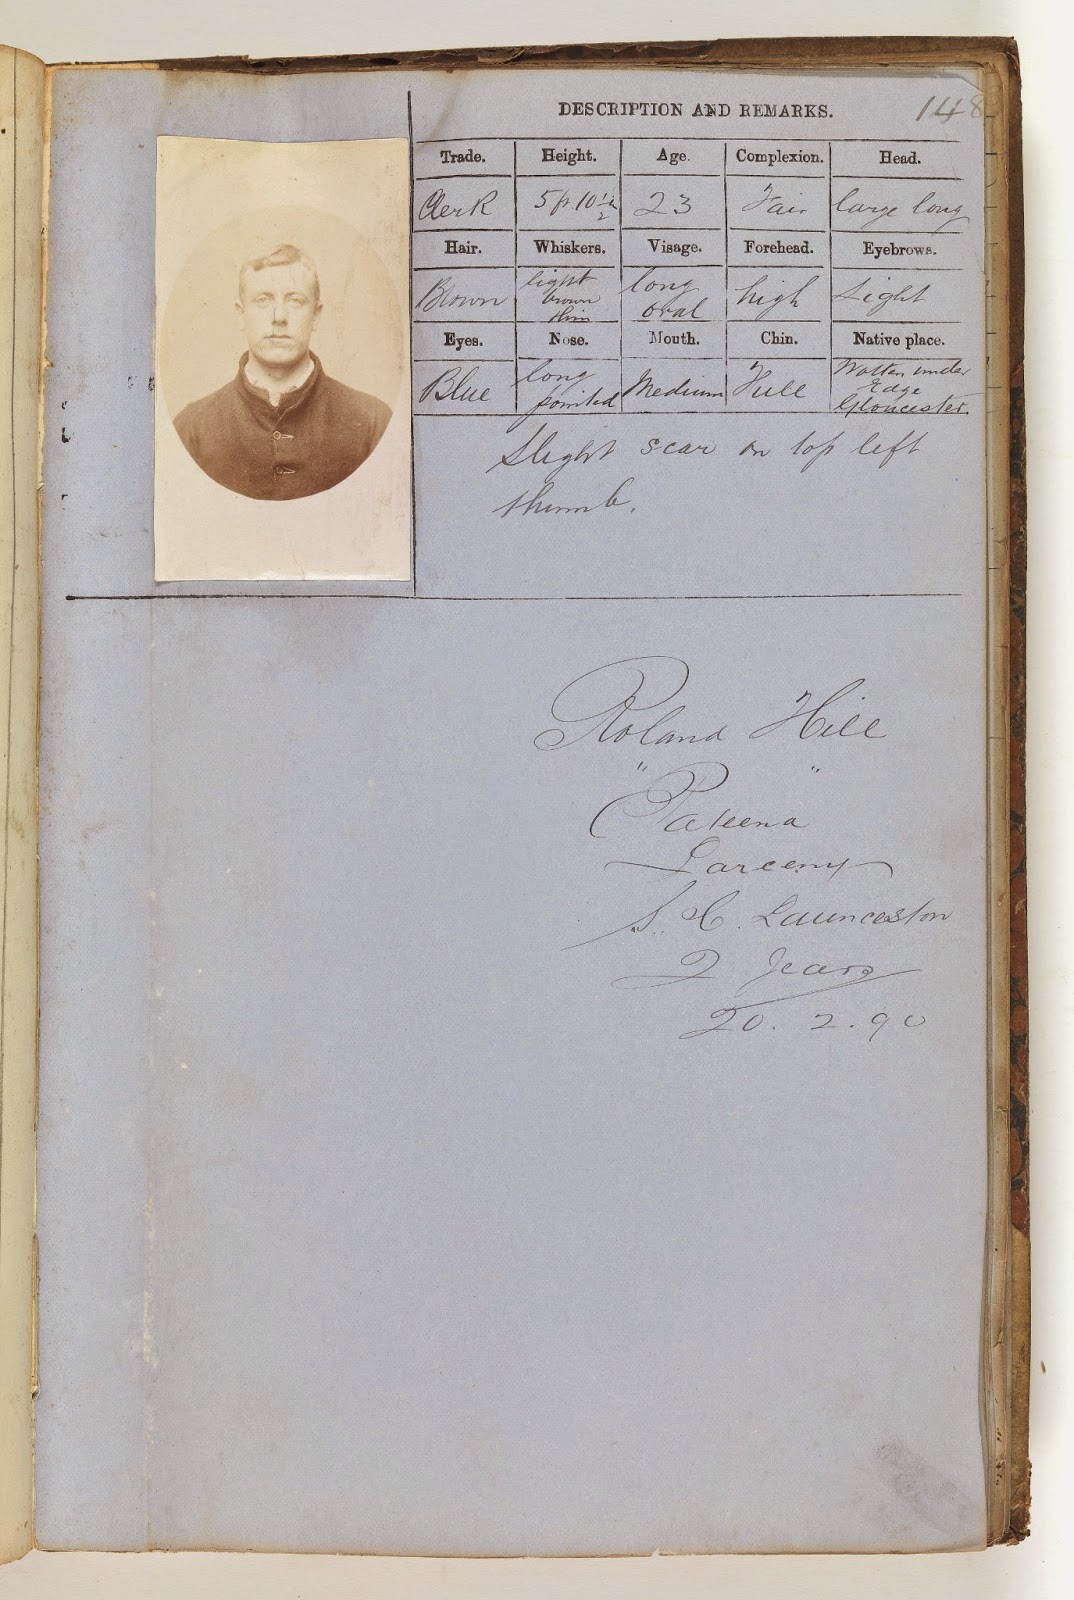 DESCRIPTION AND REMARKS.
148
Trade. Height. Age. Complexion. Head.
Clerk 5 ft 10 ½ 23 Fair large long
Hair. Whiskers. Visage. Forehead. Eyebrows.
Brown light brown thin long oral high Light
Eyes. Nose. Mouth. Chin. Native place.
Blue long pointed Medium Full Wotten under Edge Gloucester.
Slight scar on top left
thumb.
Roland Hill
"Pateena"
Larceny
S. C. Launceston
2 Years
20. 2. 90